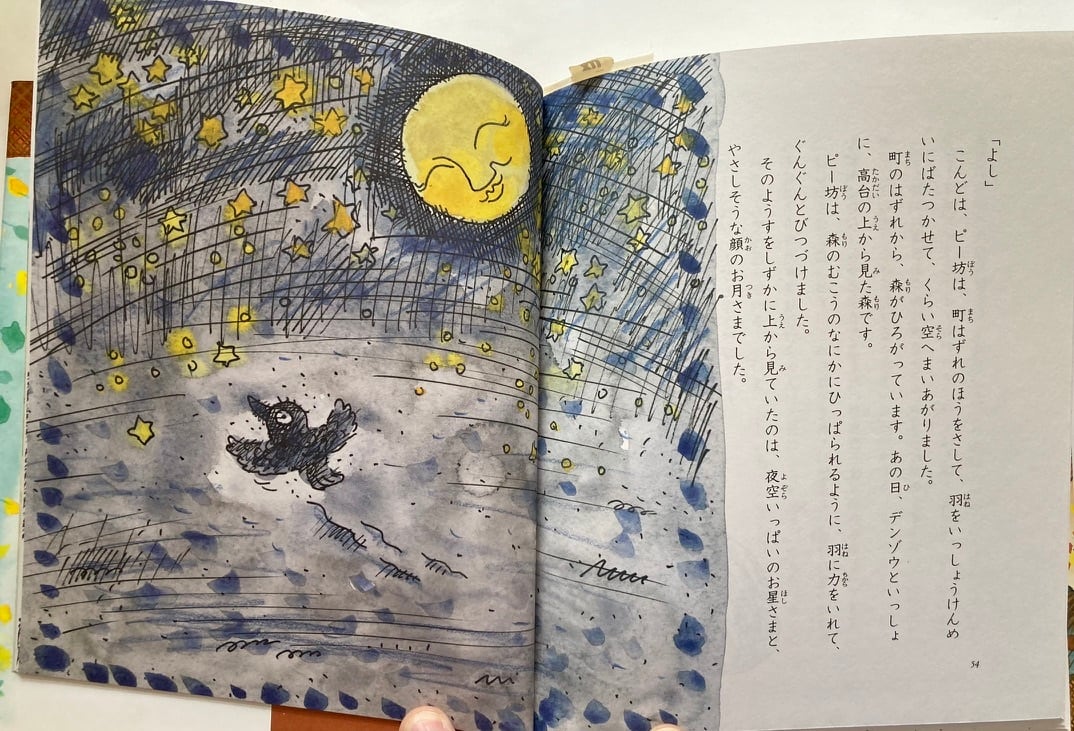 「よし」
こんどは、ピー坊は、町はずれのほうをさして、羽をいっしょうけんめ
いにばたつかせて、くらい空へまいあがりました。
町のはずれから、森がひろがっています。あの日、デンゾウといっしょ
に、高台の上から見た森です。
ピー坊は、森のむこうのなにかにひっぱられるように、羽に力をいれて、
ぐんぐんとびつづけました。
そのようすをしずかに上から見ていたのは、夜空いっぱいのお星さまと、
やさしそうな顔のお月さまでした。
54